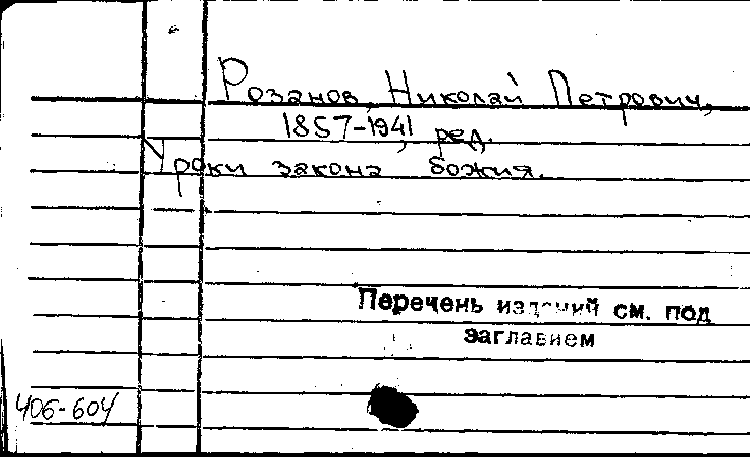 Розанов, Николай Петрович,
1857-1941, ред.
Уроки закона божия.
Перечень изданий см. под
заглавием
406-604